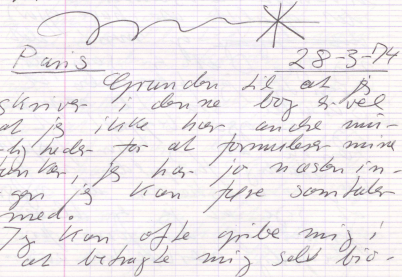 Paris 28-3-74
Grunden til at jeg
skriver i denne bog er vel
at jeg ikke har andre mu-
ligheder for at formulere mine
tanker, jeg har jo næsten in-
gen jeg kan føre samtaler
med.
Jeg kan ofte gribe mig i
at betragte mig selv bio-